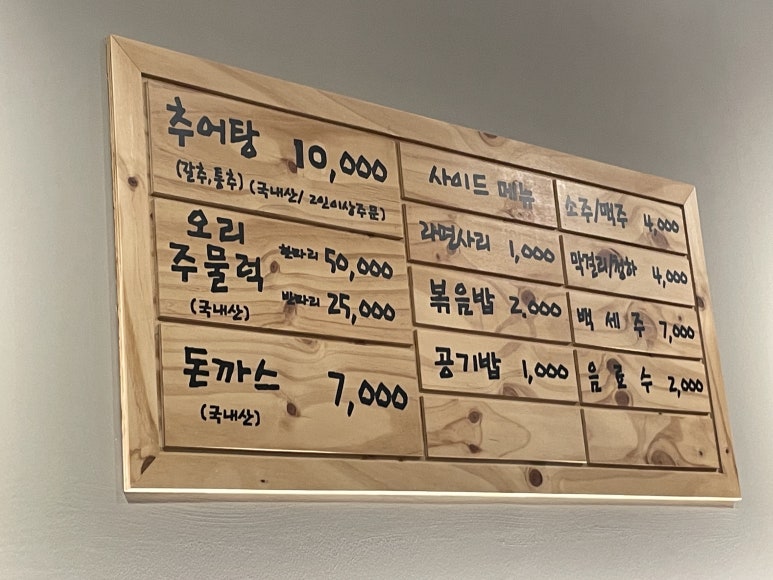 추어탕 10,000
(갈추,통추) (국내산/ 2인이상주문)
오리
주물럭
(국내산)
한마리 50,000
반마리 25,000
돈까스 7,000
(국내산)
사이드 메뉴
라면사리 1,000
볶음밥 2,000
공기밥 1,000
소주/맥주 4,000
막걸리/청하 4,000
백세주 7,000
음료수 2,000